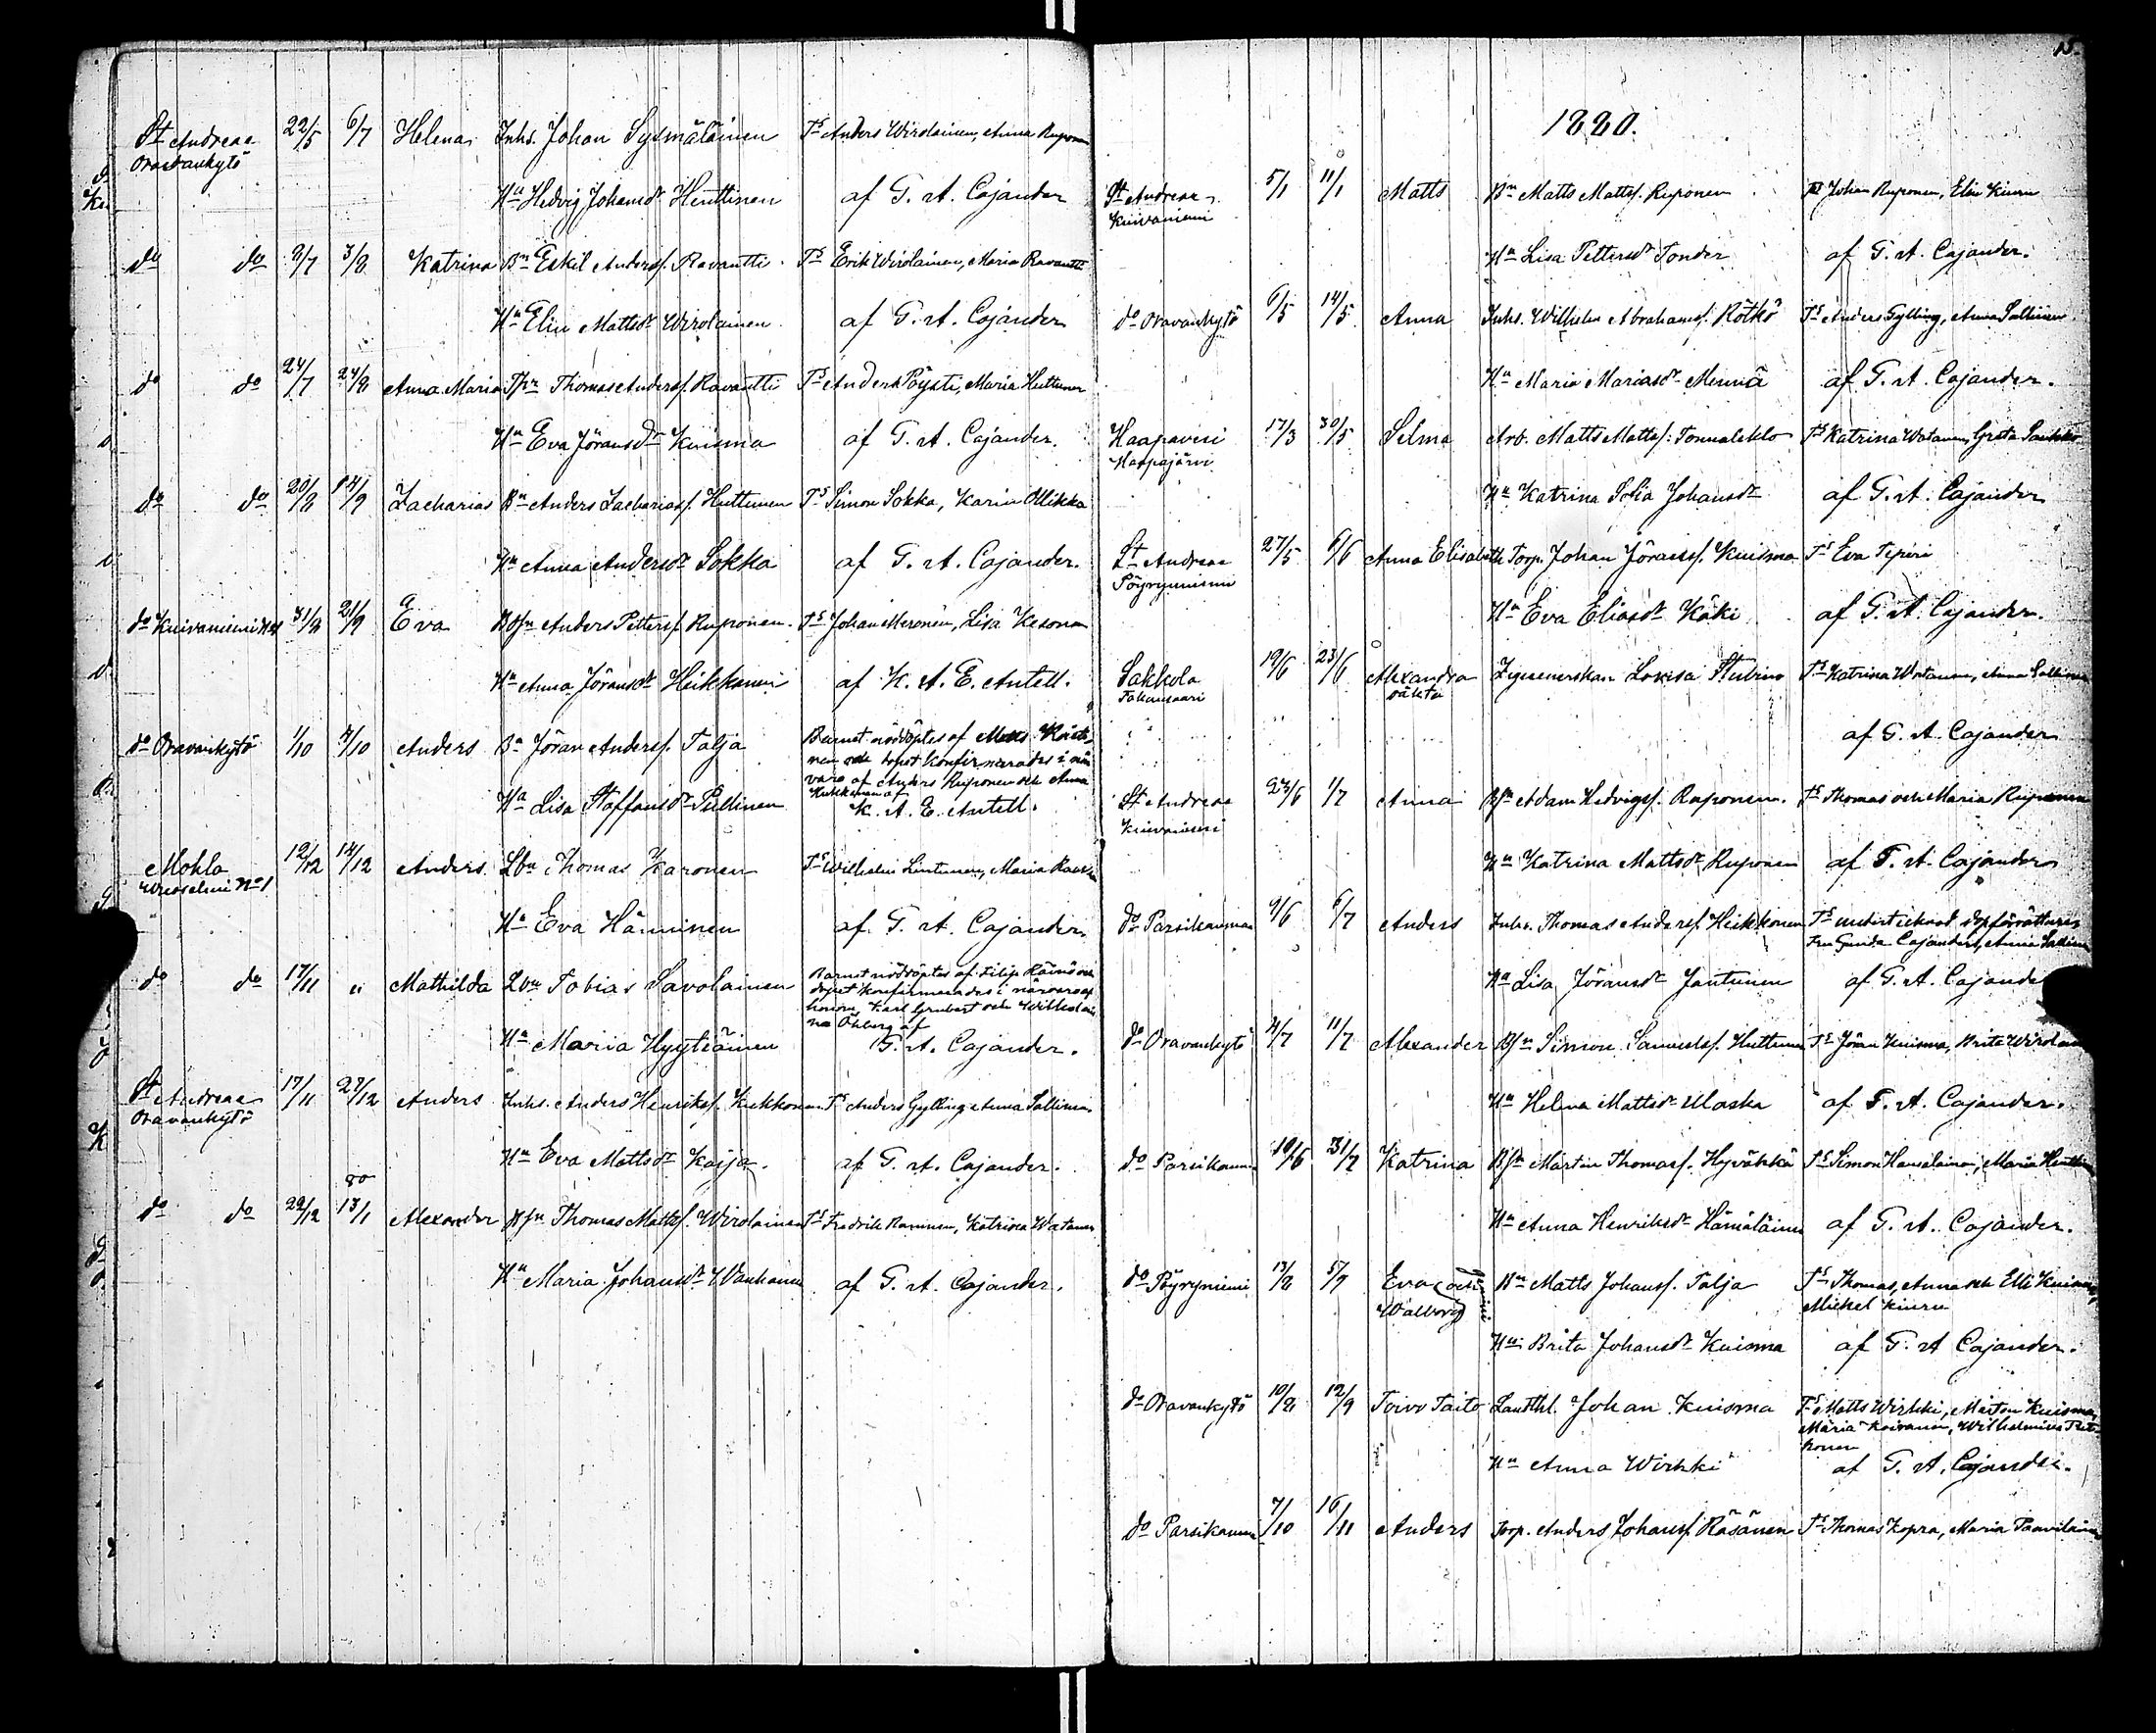 St Andreae 22/5 6/7 Helena Inhs. Johan Sysmäläinen Ts Anders Wirolainen, Anna Ruponen
Oravankytö
Hu Hedvig Johansdr Henttinen af G. A. Cajander
do do 9/7 3/8 Katrina Bn Eskil Andersf. Ravantti Ts Erik Wirolainen, Maria Ravantti
Hu Elin Mattsdr Wirolainen af G. A. Cajander
do do 24/7 24/8 Anna Maria Thomas Andersf. Ravantti Ts Anders Pöysti, Maria Huttunen
Hu Eva Jöransdr Kuisma af G. A. Cajander.
do do 20/8 14/9 Zacharias Bn Anders Zachariasf. Huttunen Ts Simon Sokka, Karin Ollikka
Hu Anna Andersdr Sokka af G. A. Cajander.
do Kuivaniemi 31/8 21/9 Eva Anders Pettersf. Ruponen. Ts Johan Meronen, Lisa Kesonen
Hu Anna Jöransdr Heikkonen af K. A. E. Antell.
do Oravankytö 1/10 4/10 Anders Bn Jöran Andersf. Talja Barnet nöddöptes af Matts
och dopet konfirmerades i när
varo af Anders Ruponen och Anna
Hu Lisa Staffansdr Pullinen af
K. A. E. Antell.
Mohla 12/12 14/12 Anders. Lbn Thomas Karonen Ts Wilhelm Lintunen, Maria
No 1
Hu Eva Hänninen af G. A. Cajander.
do do 17/11 " Mathilda Lbn Tobias Savolainen Barnet nöddöptes af Filip Räinö och
dopet konfirmerades i närvaro af
Karl Grubert och Wilhelmi
na Öhberg af
Hu Maria Hyytiäinen G. A. Cajander.
St Andreae 17/11 27/12 Anders Inhs. Anders Henriksf. Kukkonen Ts Anders Gylling, Anna Sallinen
Oravankytö
Hu Eva Mattsdr Kaija. af G. A. Cajander.
80
do do 22/12 13/1 Alexander Thomas Mattsf. Wirolainen Ts Fredrik Ramunen, Katrina Watanen
Hu Maria Johansdr Wanhanen af G. A. Cajander.
15.
1880.
St Andreae 5/1 11/1 Matts Bn Matts Mattsf. Ruponen Ts Johan Ruponen, Elin Kiuru
Kuivaniemi
Hu Lisa Pettersdr Tonder af G. A. Cajander.
do Oravankytö 6/5 14/5 Anna Inhs. Wilhelm Abrahamsf. Rötkö Ts Anders Gylling, Anna Sallinen
Hu Maria Mariasdr Mennä af G. A. Cajander.
Haapavesi 17/3 30/5 Selma Arb. Matts Mattsf. Ts Katrina Watanen, Greta
Haapajärvi
Hu Katrina Sofia Johansdr af G. A. Cajander
St Andreae 27/5 6/6 Anna Elisabeth Torp. Johan Jöransf. Kuisma Ts Eva Tepiri
Pöyryniemi
Hu Eva Eliasdr Käki af G. A. Cajander.
Sakkola 19/6 23/6 Alexandra Zigenerskan Lovisa Stubino Ts Katrina Watanen, Anna Sallinen
oäkta
af G. A. Cajander
St Andreae 23/6 1/7 Anna Adam Hedvigsf. Ruponen. Ts Thomas och Maria Ruponen
Kuivaniemi
Hu Katrina Mattsdr Ruponen af G. A. Cajander
do Parsikanmaa 9/6 6/7 Anders Inhs. Thomas Andersf. Heikkonen Ts undertecknad dopförrättare
Fru Gunda Cajander, Anna Sallinen
Hu Lisa Jöransdr Jantunen af G. A. Cajander
do Oravankytö 4/7 11/7 Alexander Bsn Simon Samuelsf. Huttunen Ts Jöran Kuisma, Brita Wirolainen
Hu Helena Mattsdr Ulaska af G. A. Cajander.
do 10/6 31/7 Katrina Bsn Mårten Thomasf. Hyväkkä Ts Simon Hanselainen, Maria Henttinen
Hu Anna Henriksdr Hämäläinen af G. A. Cajander.
do Pöyryniemi 13/8 5/9 Eva och Bn Matts Johansf. Talja Ts Thomas, Anna och Elli Kuisma,
Walborg Mickel Kiuru
Hu Brita Johansdr Kuisma af G. A. Cajander.
do Oravankytö 10/8 12/9 Toivo Taito Lantthl. Johan Kuisma Ts Matts Wirkki, Mårten Kuisma,
Maria Koivanen, Wilhelmina
konen
Hu Anna Wirkki af G. A. Cajander.
do 7/10 16/11 Anders Torp. Anders Johansf. Räsänen Ts Thomas Kopra, Maria Paavilainen